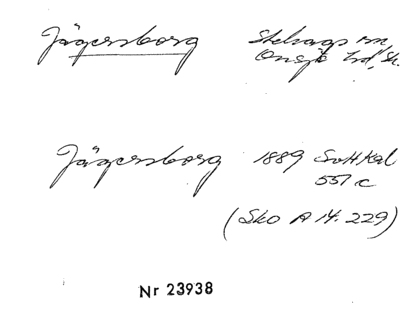 Jägersborg Stehags sn
Onsjö hd, Sk.
Jägersborg 1889 SvHKal
551 c
(Sko A 14. 229)
Nr 23938